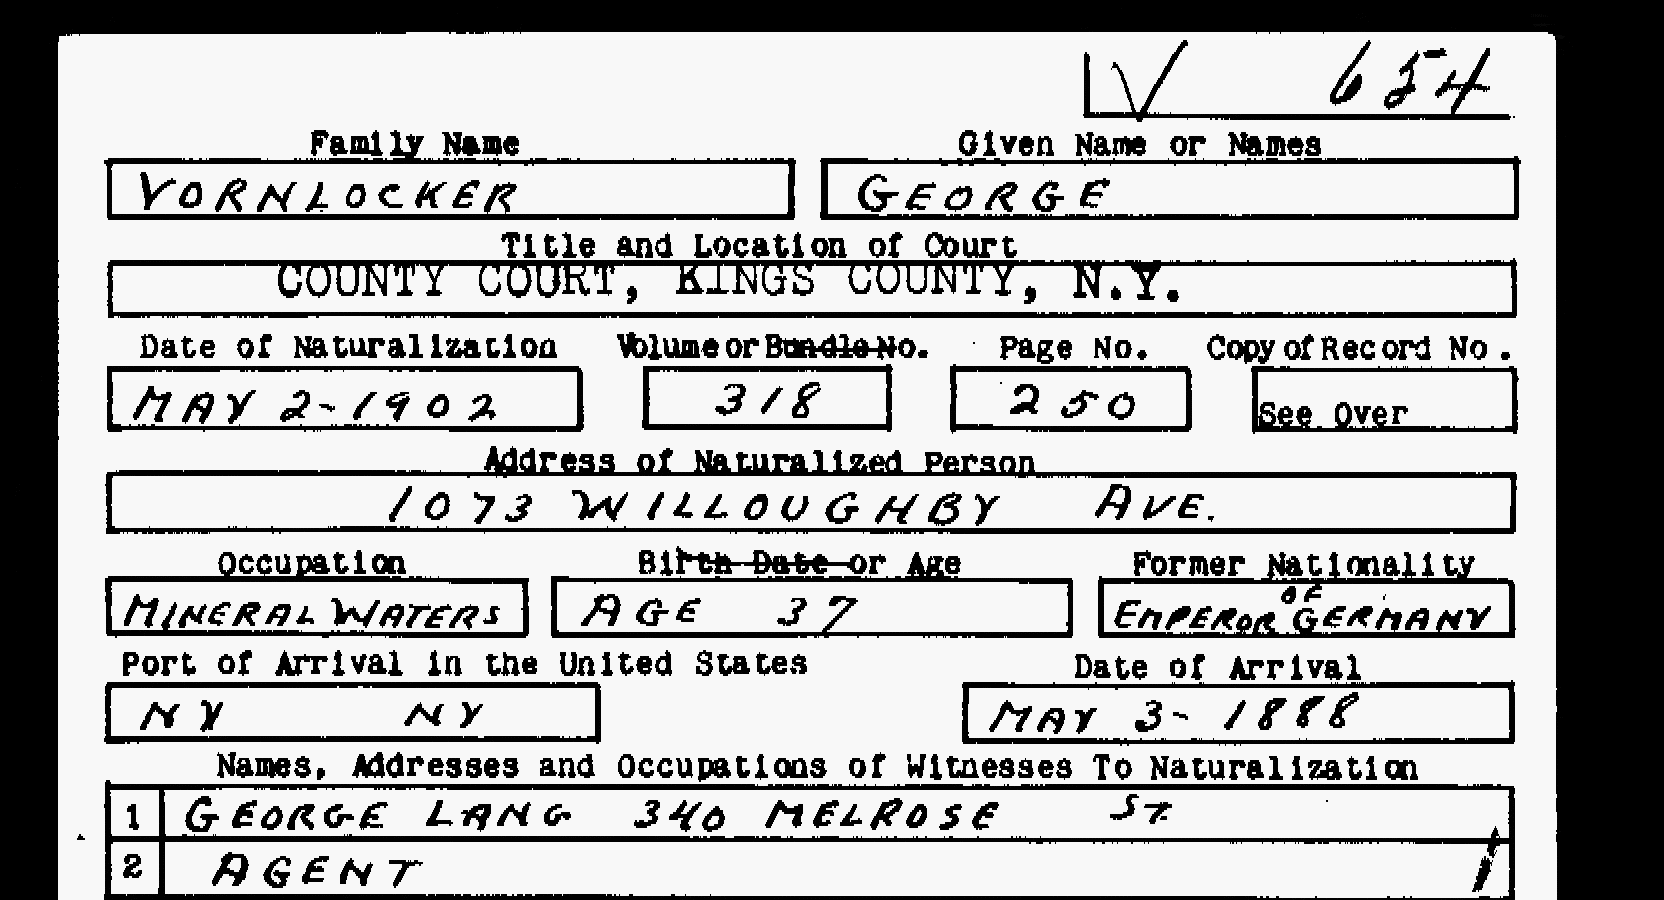 V 654
Family Name Given Name or Names
VORNLOCKER GEORGE
Title and Location of Court
COUNTY COURT, KINGS COUNTY, N.Y.
Date of Naturalization Volume or Bundle No. Page No. Copy of Record No.
MAY 2-1902 318 250 See Over
Address of Naturalized Person
1073 WILLOUGHBY AVE.
Occupation Birth Date or Age Former Nationality
MINERAL WATERS AGE 37 EMPEROR OF GERMANY
Port of Arrival in the United States Date of Arrival
NY NY MAY 3-1888
Names, Addresses and Occupations of Witnesses To Naturalization
1 GEORGE LANG 340 MELROSE ST.
2 AGENT